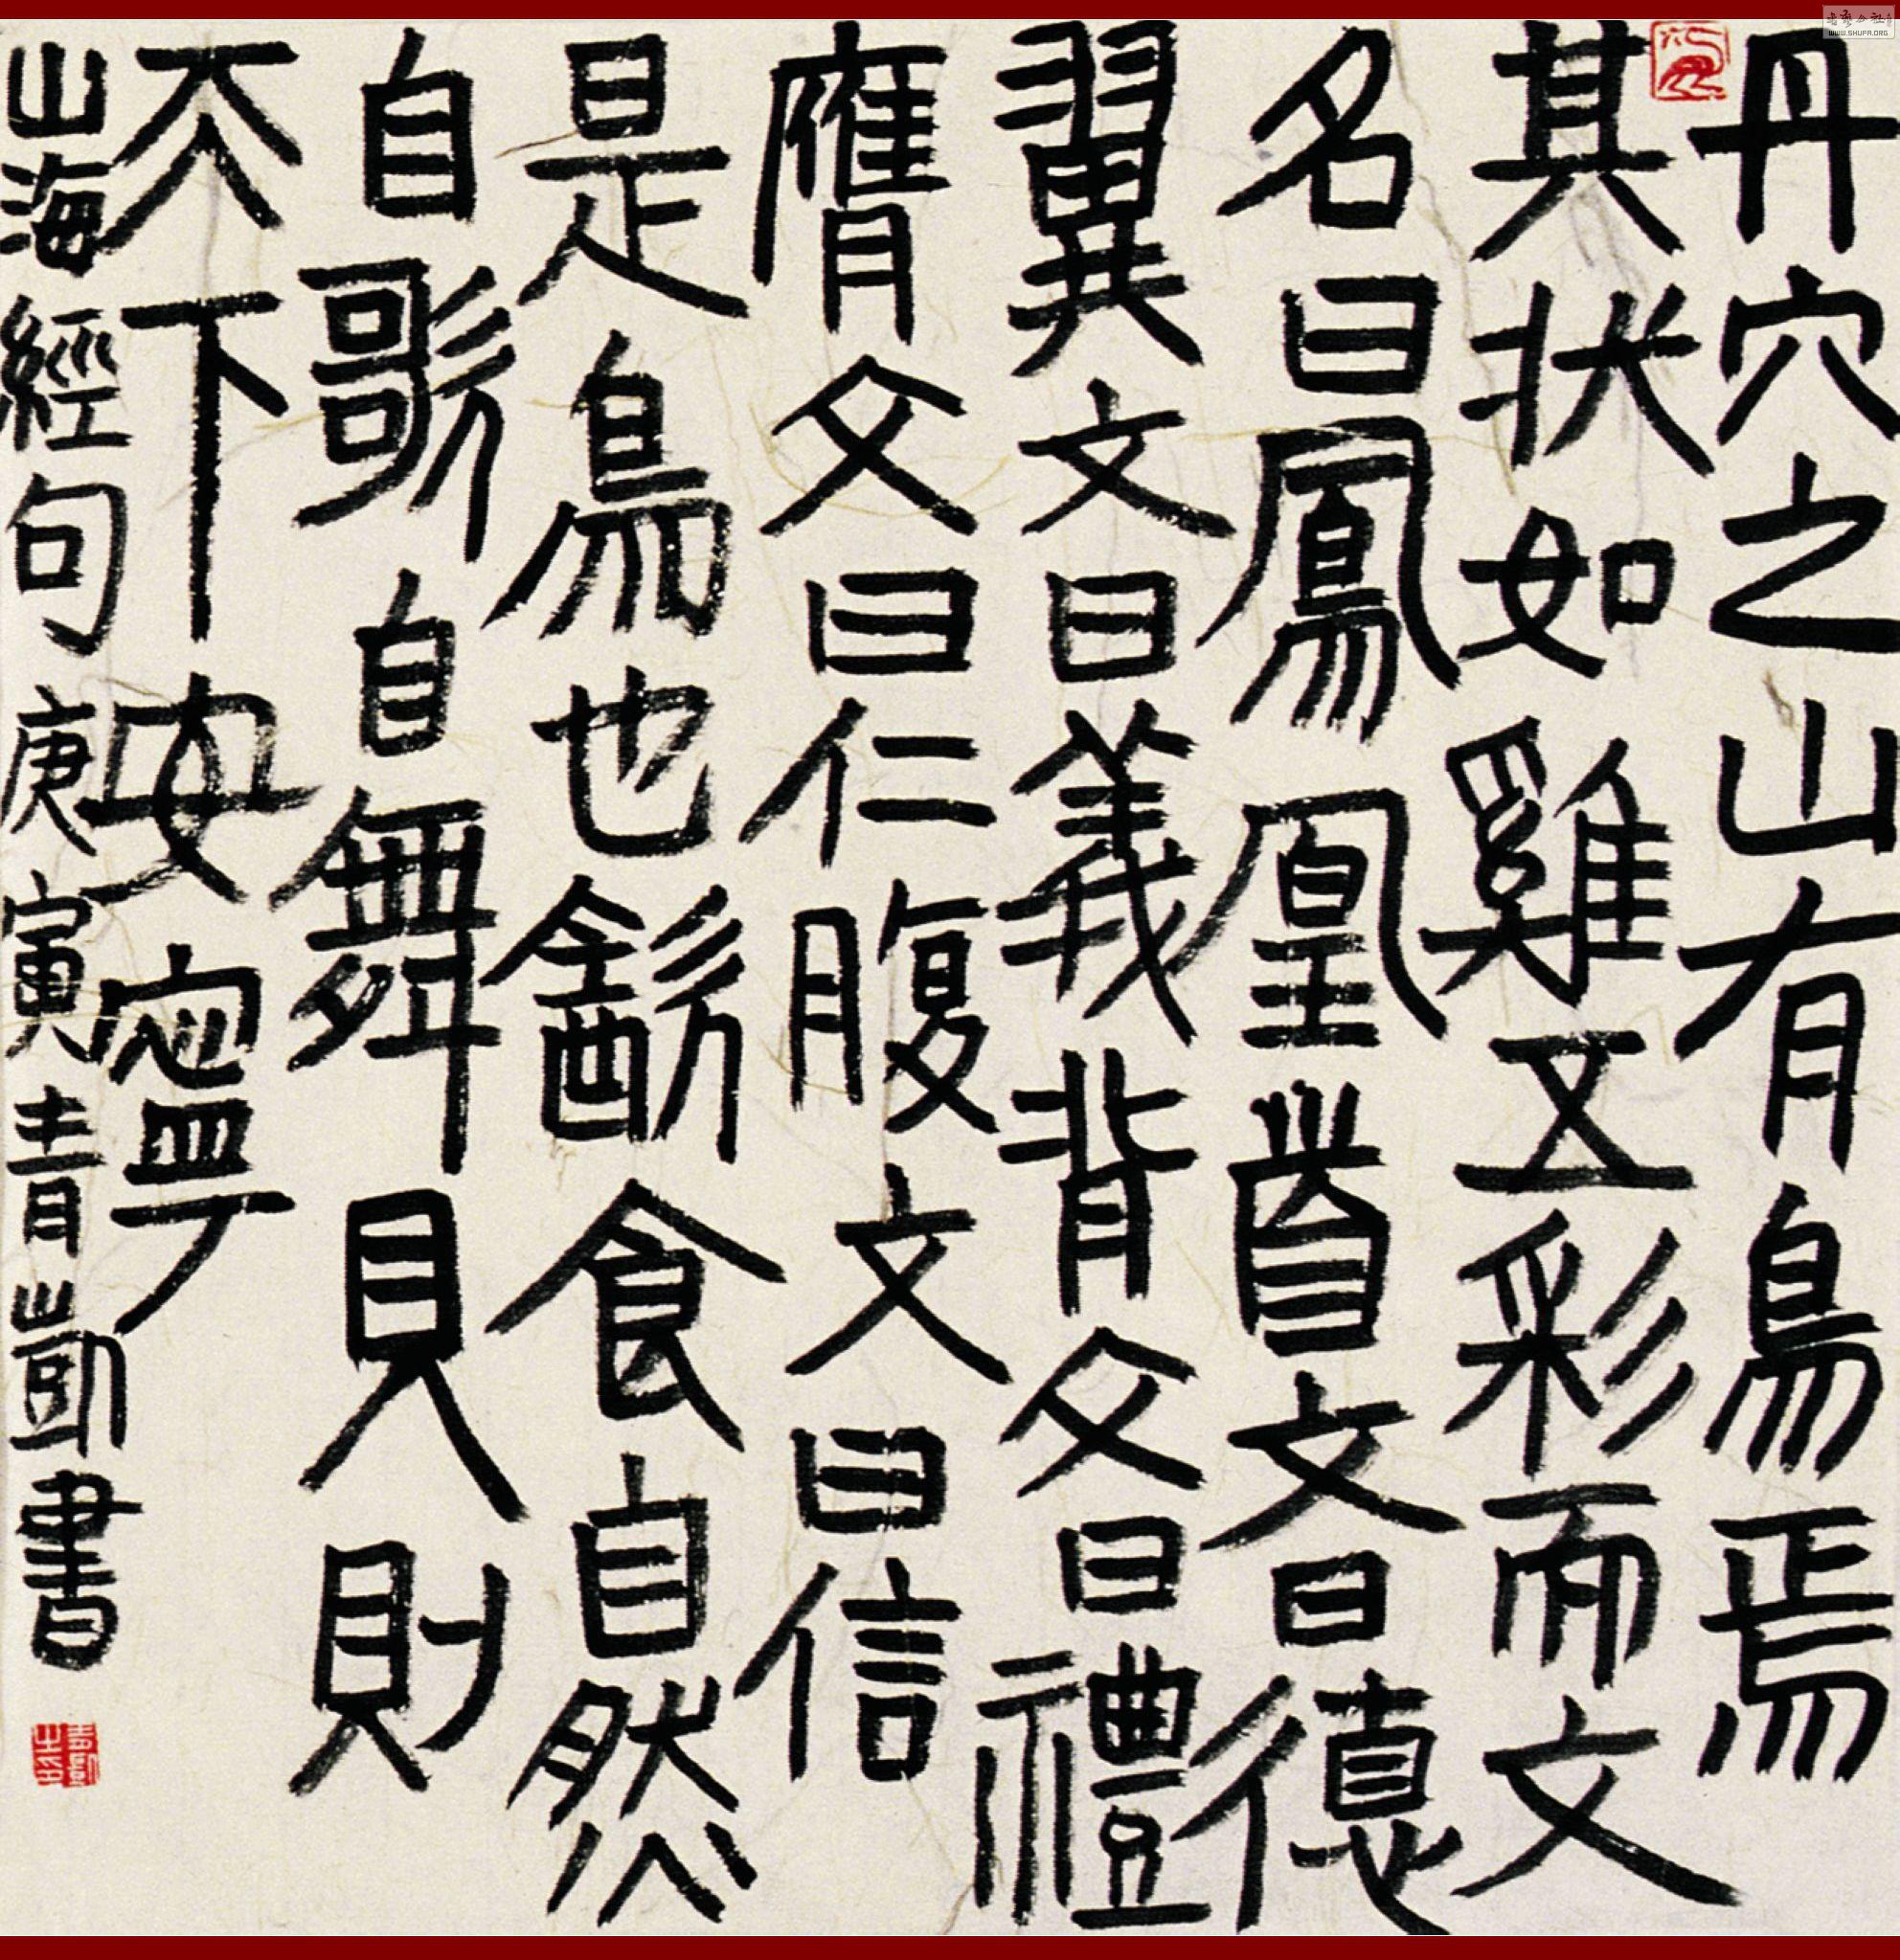 丹穴之山有鳥焉
其状如雞五彩而文
名曰鳳凰首文曰德
翼文曰義背文曰禮
膺文曰仁腹文曰信
是鳥也㱃食自然
自歌自舞見則
天下安寧
山海經句庚寅青凱書
WWW.SHUFA.ORG